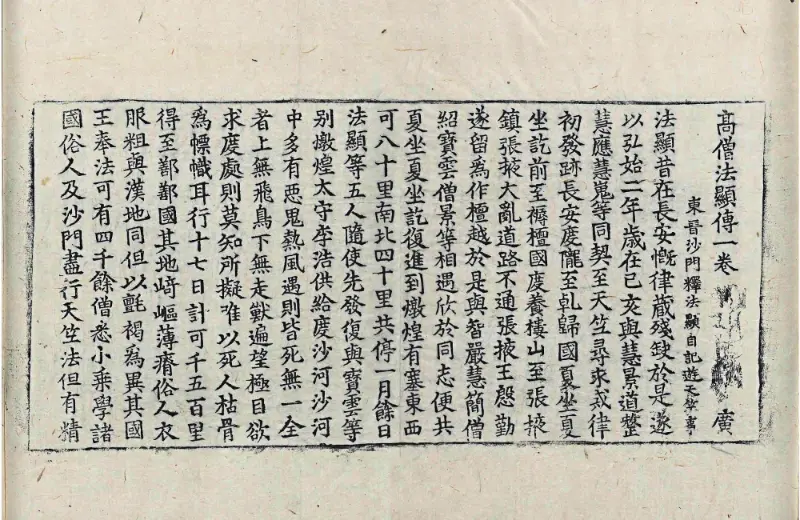 高僧法顯傳一卷 廣
東晉沙門釋法顯自記遊天竺事
法顯昔在長安慨律藏殘缺於是遂
以弘始二年歲在己亥與慧景道整
慧應慧嵬等同契至天竺尋求戒律
初發跡長安度隴至乹歸國夏坐夏
坐訖前至褥檀國度養樓山至張掖
鎮張掖大亂道路不通張掖王慇懃
遂留為作檀越於是與智嚴慧簡僧
紹寶雲僧景等相遇欣於同志便共
夏坐夏坐訖復進到燉煌有塞東西
可八十里南北四十里共停一月餘日
法顯等五人隨使先發復與寶雲等
別燉煌太守李浩供給度沙河沙河
中多有惡鬼熱風遇則皆死無一全
者上無飛鳥下無走獸遍望極目欲
求度處則莫知所擬唯以死人枯骨
為幖幟耳行十七日計可千五百里
得至鄯鄯國其地崎嶇薄瘠俗人衣
服粗與漢地同但以氈褐為異其國
王奉法可有四千餘僧悉小乘學諸
國俗人及沙門盡行天竺法但有精